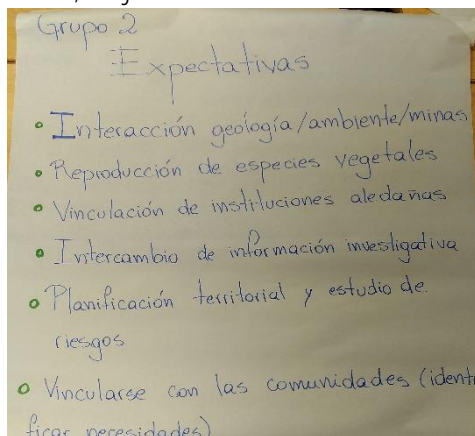 Grupo 2
Expectativas
• Interacción geología/ambiente/minas
• Reproducción de especies vegetales
• Vinculación de instituciones aledañas
• Intercambio de información investigativa
• Planificación territorial y estudio de
riesgos
• Vincularse con las comunidades (identi
ficar necesidades)